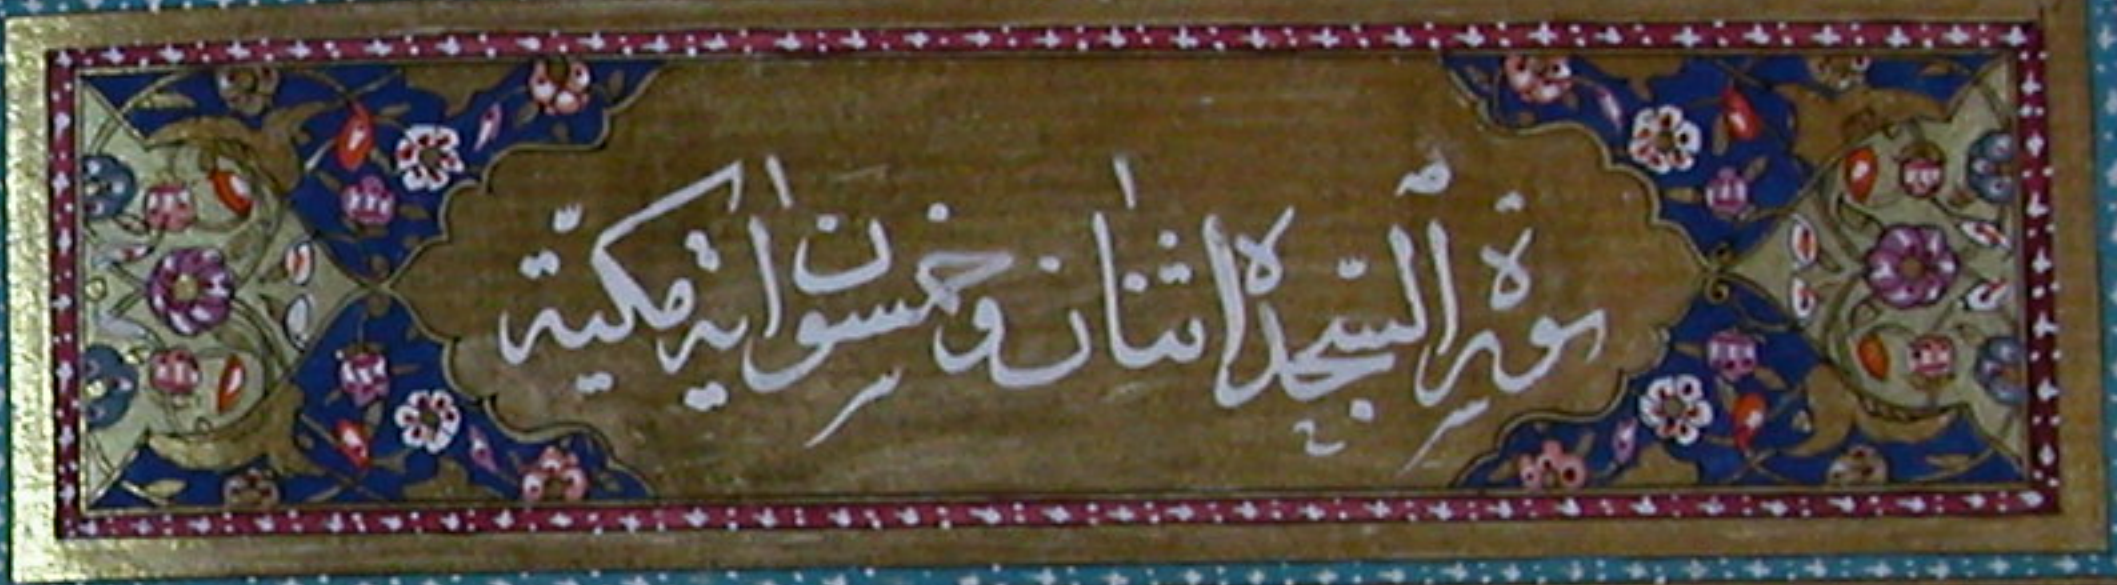 سورة السّجدة اثنان وخمسون اية مكيّة